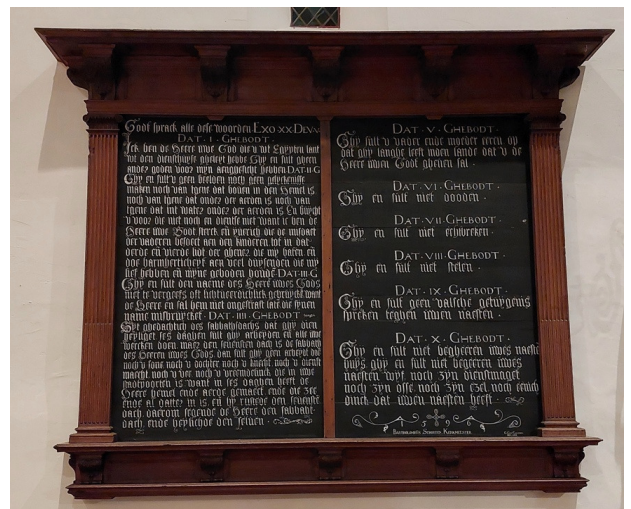 Godt sprack alle dese woorden Exo XX Deu V
DAT · I · GHEBODT ·
Ick ben de Heere uwe God die u uit Egypten lant
uit den diensthuyse geleyt hebbe Ghy en sult gheen
ander goden voor myn aengesichte hebben DAT · II · G
Ghy en sult u geen beelden noch geen gelyckenisse
maken noch van tgene dat boven in den Hemel is
noch van tgene dat onder der aerden is noch van
tgene dat int water onder der aerden is En buycht
u voor die niet noch en dientse niet want ic ben de
Heere uwe Godt sterck en yverich die de misdaet
der vaderen besoect aen den kinderen tot in dat
derde en vierde lidt der ghener die my haten en
doe barmherticheyt aen veel duysenden die my
lief hebben en myne geboden houde · DAT · III · G
Ghy en sult den naeme des Heere uwes Gods
niet te vergeefs oft lichtveerdichlick gebruycke want
de Heere en sal hem niet ongestraft late die synen
name misbruycket · DAT · IIII · GHEBODT ·
Syt ghedachtich des sabbathdachs dat ghy dien
heyliget ses daghen sult ghy arbeyden en alle uwe
wercken doen maer den sevensten dach is de sabbath
des Heeren uwes Gods dan sult ghy geen arbeyt doe
noch u sone noch u dochter noch u knecht noch u dienst
maecht noch u vee noch u vreemdelinck die in uwe
stadtpoorten is want in ses daghen heeft de
Heere hemel ende aerde gemaect ende die zee
ende al datter in is, en hy rustede den sevenste
dach, daerom segende de Heere den sabbaht-
dach, ende heylichde den selven ·
DAT · V · GHEBODT ·
Ghy sult u vader ende moeder eeren op
dat ghy langhe leeft inden lande dat u de
Heere uwen Godt gheven sal ·
DAT · VI · GHEBODT ·
Ghy en sult niet dooden ·
DAT · VII · GHEBODT ·
Ghy en sult niet echtbreken ·
DAT · VIII · GHEBODT ·
Ghy en sult niet stelen ·
DAT · IX · GHEBODT ·
Ghy en sult geen valsche getuygenis
spreken teghen uwen naesten ·
DAT · X · GHEBODT ·
Ghy en sult niet begheeren uwes naeste
huys ghy en sult niet begeeren uwes
naesten wyf noch zyn dienstmaget
noch zyn osse noch zyn ezel noch eenich
dinck dat uwen naesten heeft ·
1 5 9 6